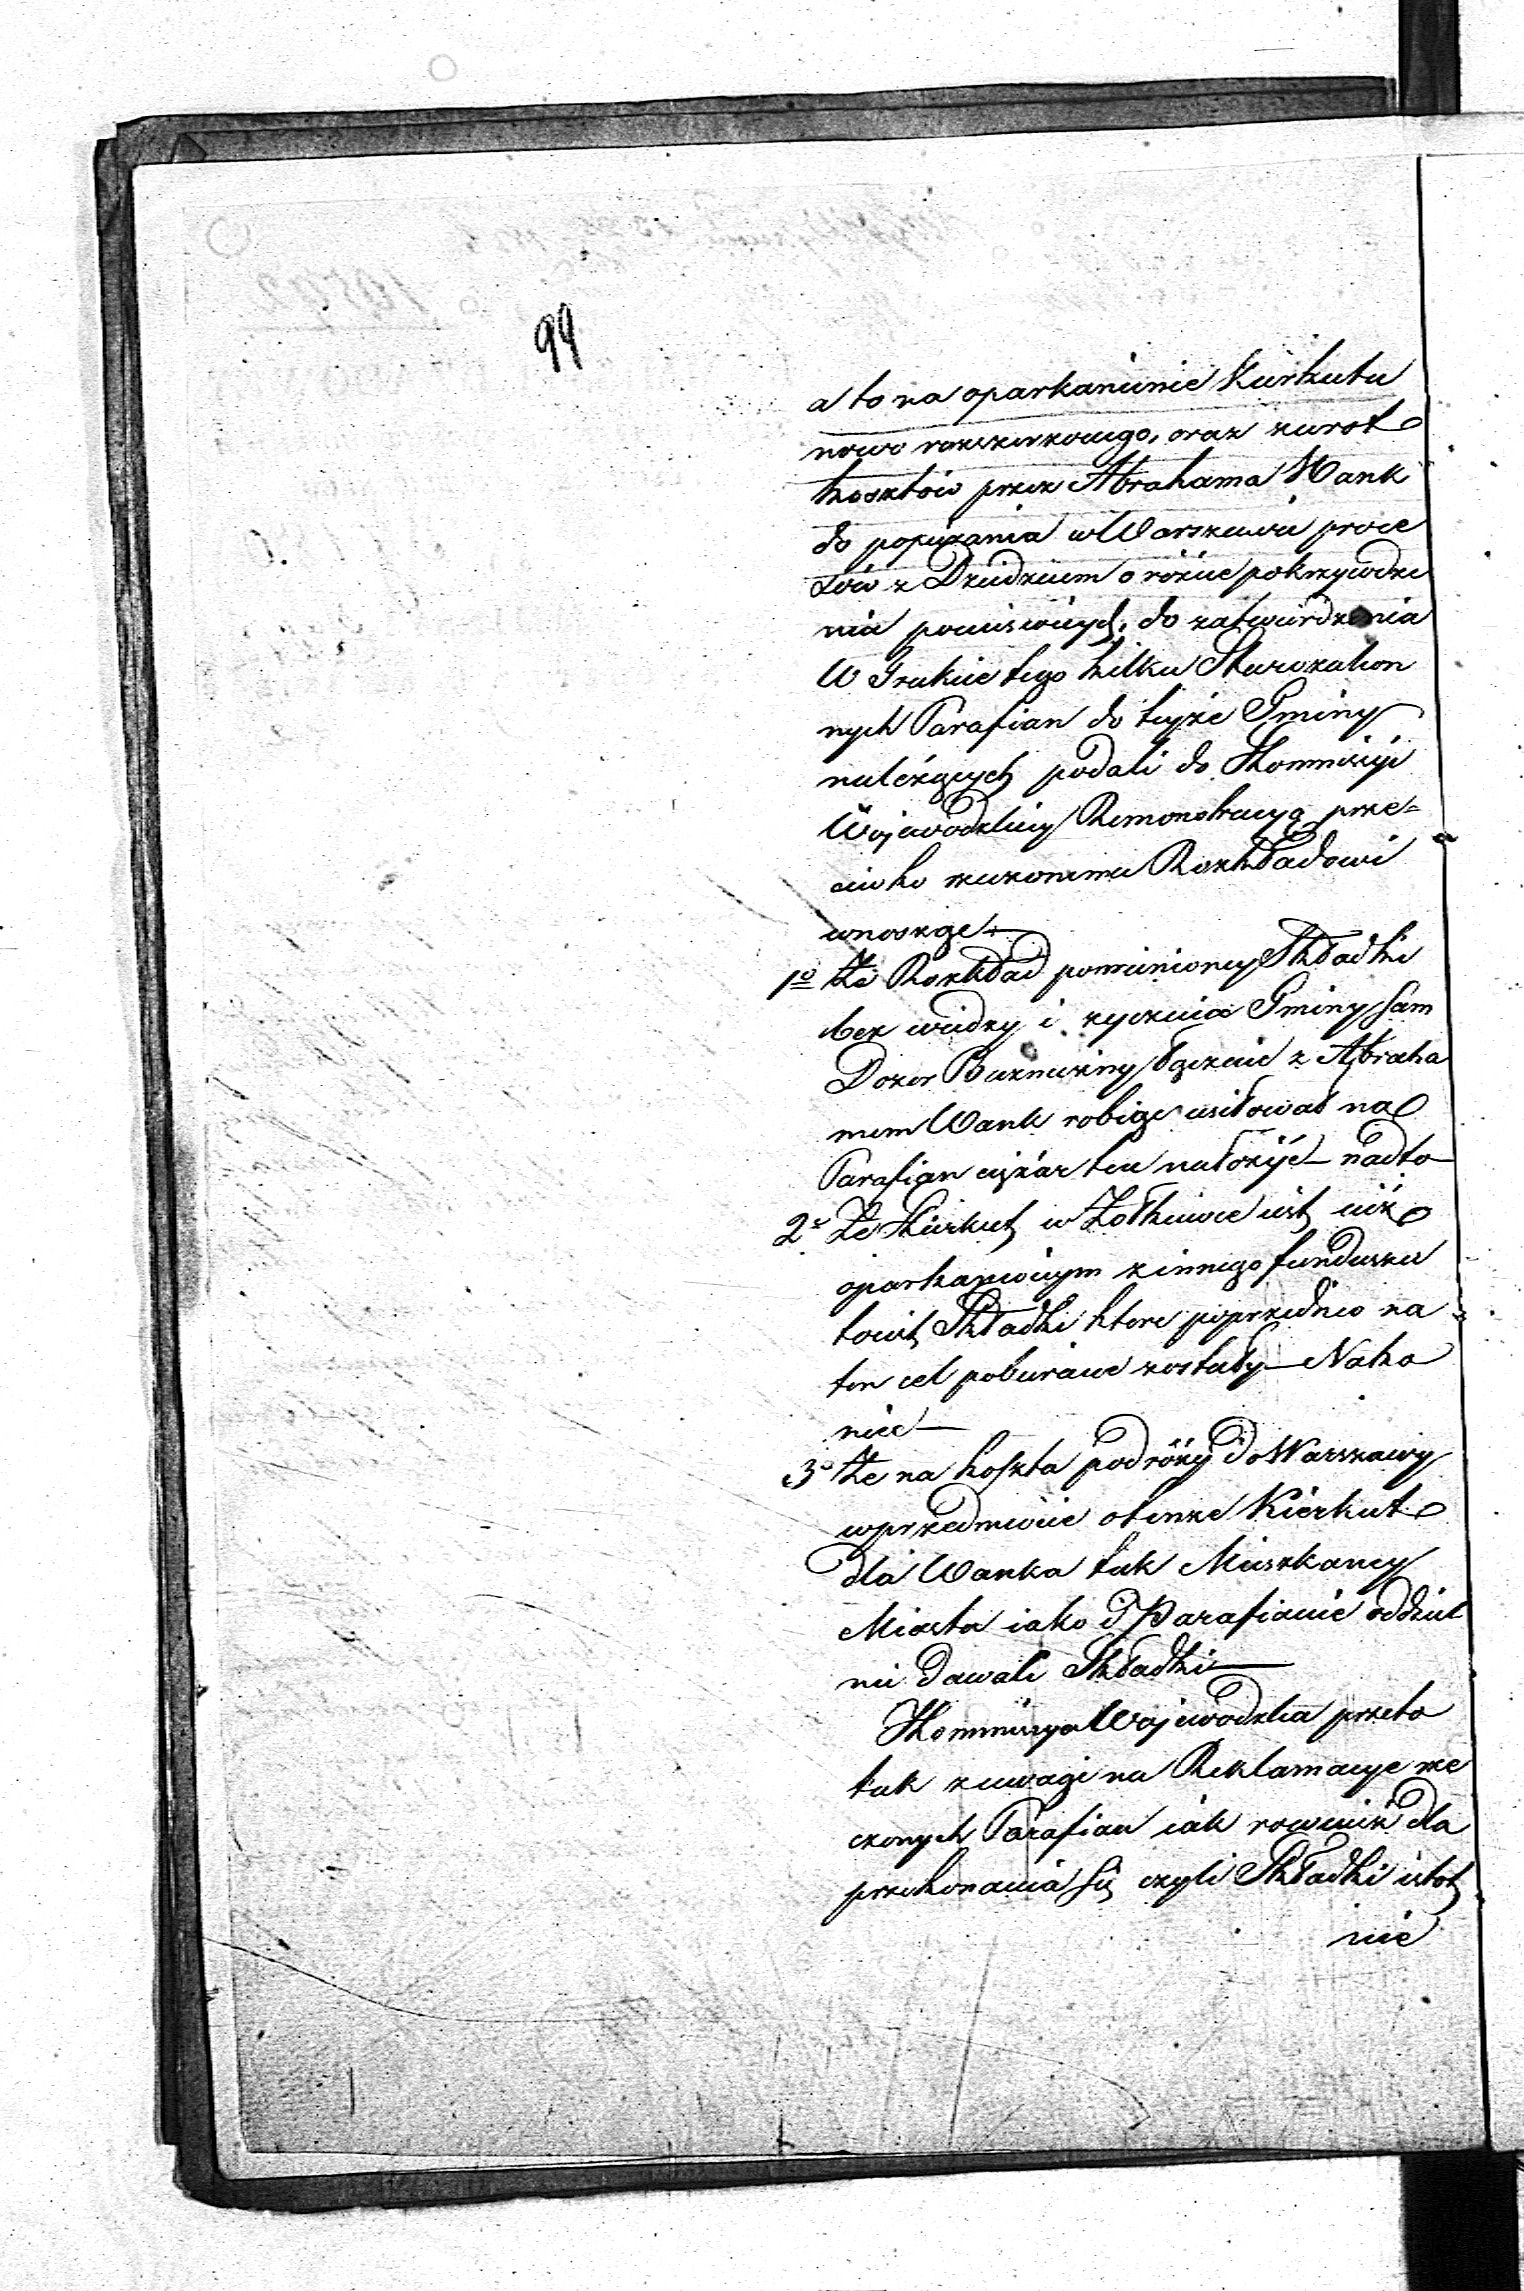 94
a to na oparkanienie Kierkutu
nowo rozszerzonego, oraz zwrot
kosztów przez Abrahama Wank
do popierania w Warszawie proce
sów z Dziedzicem o różne pokrzywdze
nia poniesionych, do zatwierdzenia
W Trakcie tego kilku Starozakon
nych Parafian do tejże Gminy
należących podali do Kommissyi
Wojewodzkiey Remonstracyą prze=
ciwko rzeczonemu Rozkładowi
wnosząc
1o Że Rozkład pomienioney Składki
bez wiedzy i życzenia Gminy sam
Dozor Bużniczny łącznie z Abraha
mem Wank robiąc usiłował na
Parafian ciężar ten nałożyć — nadto
2o Że Kierkut w Żołkiewce iest iuż
oparkanionym z innego funduszu
to iest Składki ktore poprzednio na
ten cel pobierane zostały — Nako
niec —
3o Że na koszta podróży do Warszawy
w przedmiocie o tenże Kierkut
dla Wanka tak Mieszkańcy
Miasta iako i Parafianie oddziel
nie dawali Składki —
Kommissya Wojewodzka przeto
tak z uwagi na Reklamacye rze
czonych Parafian iak rownież dla
przekonania się czyli Składki istot
nie